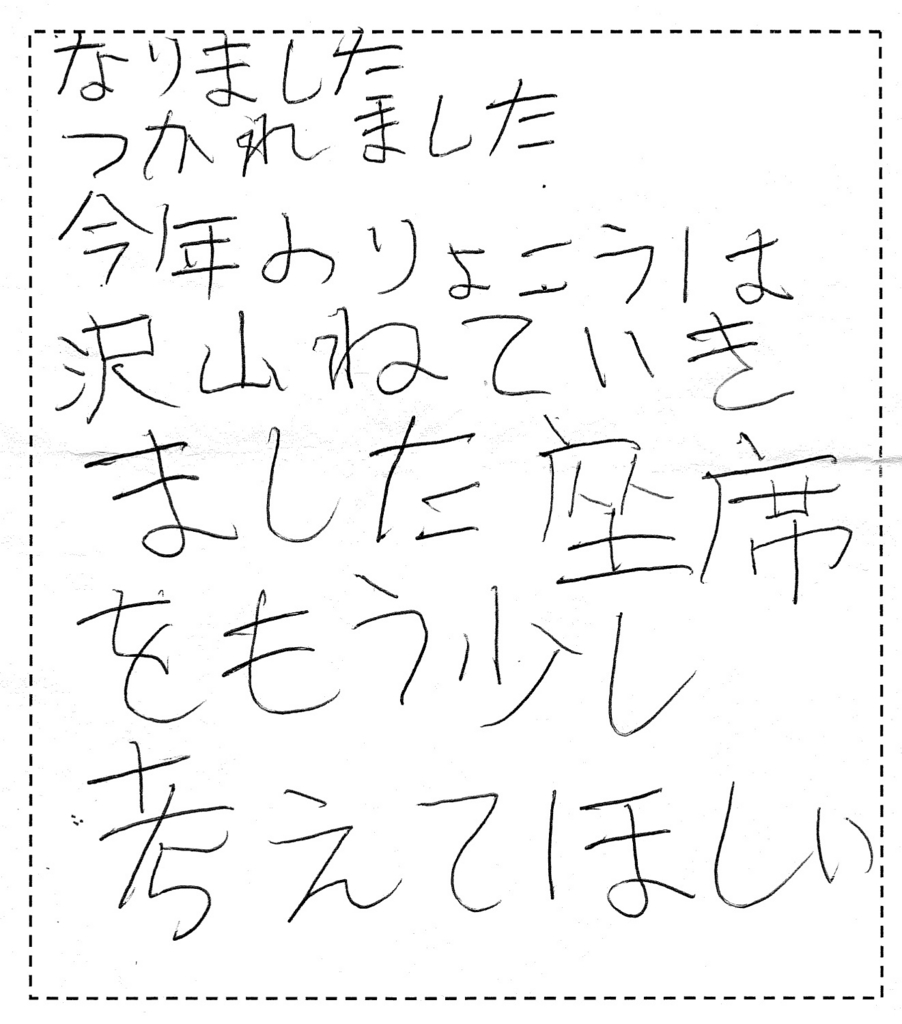 なりました
つかれました
今年のりょこうは
沢山ねていき
ました座席
をもう少し
考えてほしい